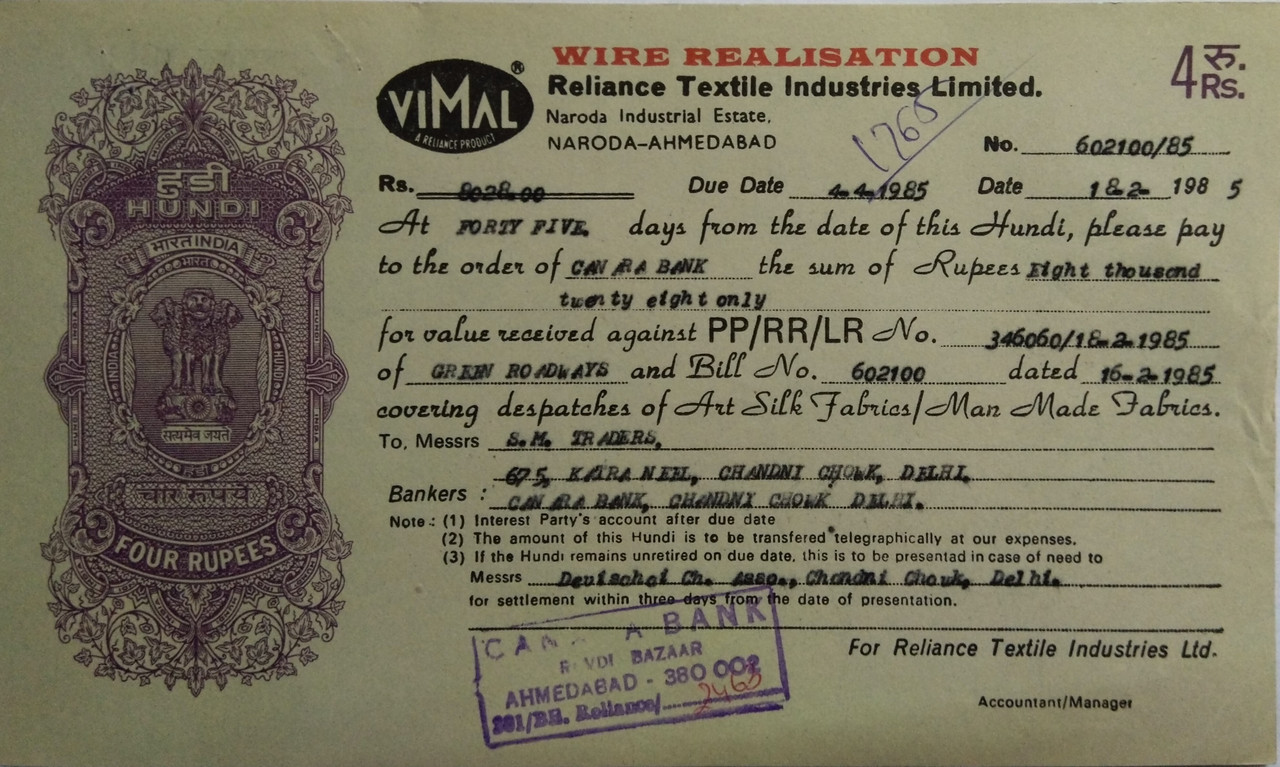 WIRE REALISATION
VIMAL ®
A RELIANCE PRODUCT
Reliance Textile Industries Limited.
Naroda Industrial Estate,
NARODA-AHMEDABAD
4 रु.
Rs.
1765
No. 602100/85
Rs. 8028.00 Due Date 4-4-1985 Date 18-2- 198 5
हुंडी
HUNDI
भारत INDIA
भारत
INDIA
HUNDI
सत्यमेव जयते
हुंडी
चार रूपये
FOUR RUPEES
At FORTY FIVE days from the date of this Hundi, please pay
to the order of CANARA BANK the sum of Rupees Eight thousand
twenty eight only
for value received against PP/RR/LR No. 346060/18-2-1985
of GREEN ROADWAYS and Bill No. 602100 dated 16-2-1985
covering despatches of Art Silk Fabrics/Man Made Fabrics.
To, Messrs S.M. TRADERS,
675, KATRA NEEL, CHANDNI CHOWK, DELHI.
Bankers : CANARA BANK, CHANDNI CHOWK DELHI.
Note : (1) Interest Party's account after due date
(2) The amount of this Hundi is to be transfered telegraphically at our expenses.
(3) If the Hundi remains unretired on due date, this is to be presentad in case of need to
Messrs Deutschoi Ch. Asso., Chandni Chowk, Delhi.
for settlement within three days from the date of presentation.
CAN A BANK
BAZAAR
AHMEDABAD - 380 002
381/BH. Reliance/ 2463
For Reliance Textile Industries Ltd.
Accountant/Manager